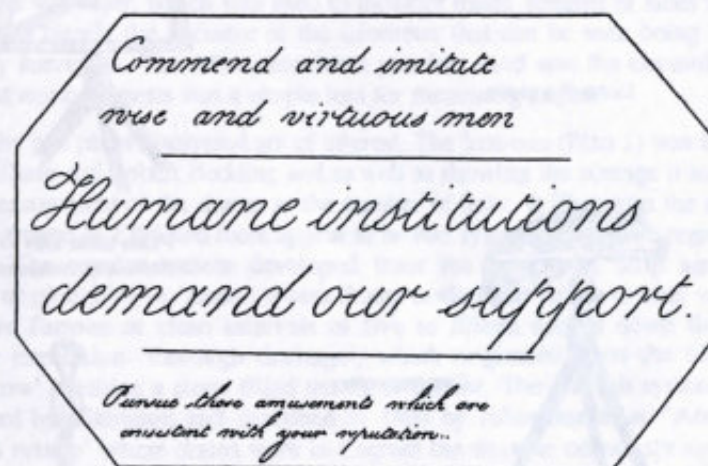 Commend and imitate
wise and virtuous men
Humane institutions
demand our support.
Pursue those amusements which are
consistent with your reputation..